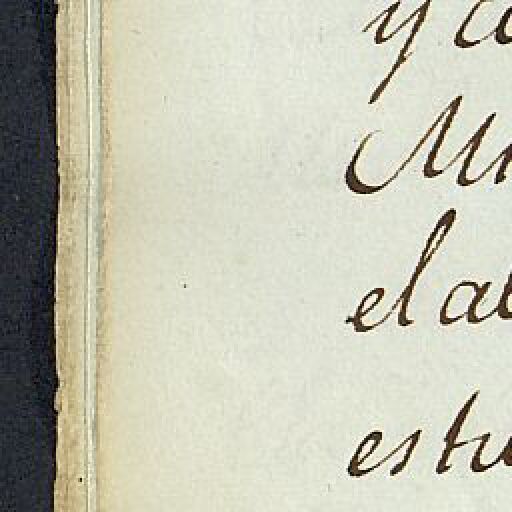 y co
Mi
el a
estu